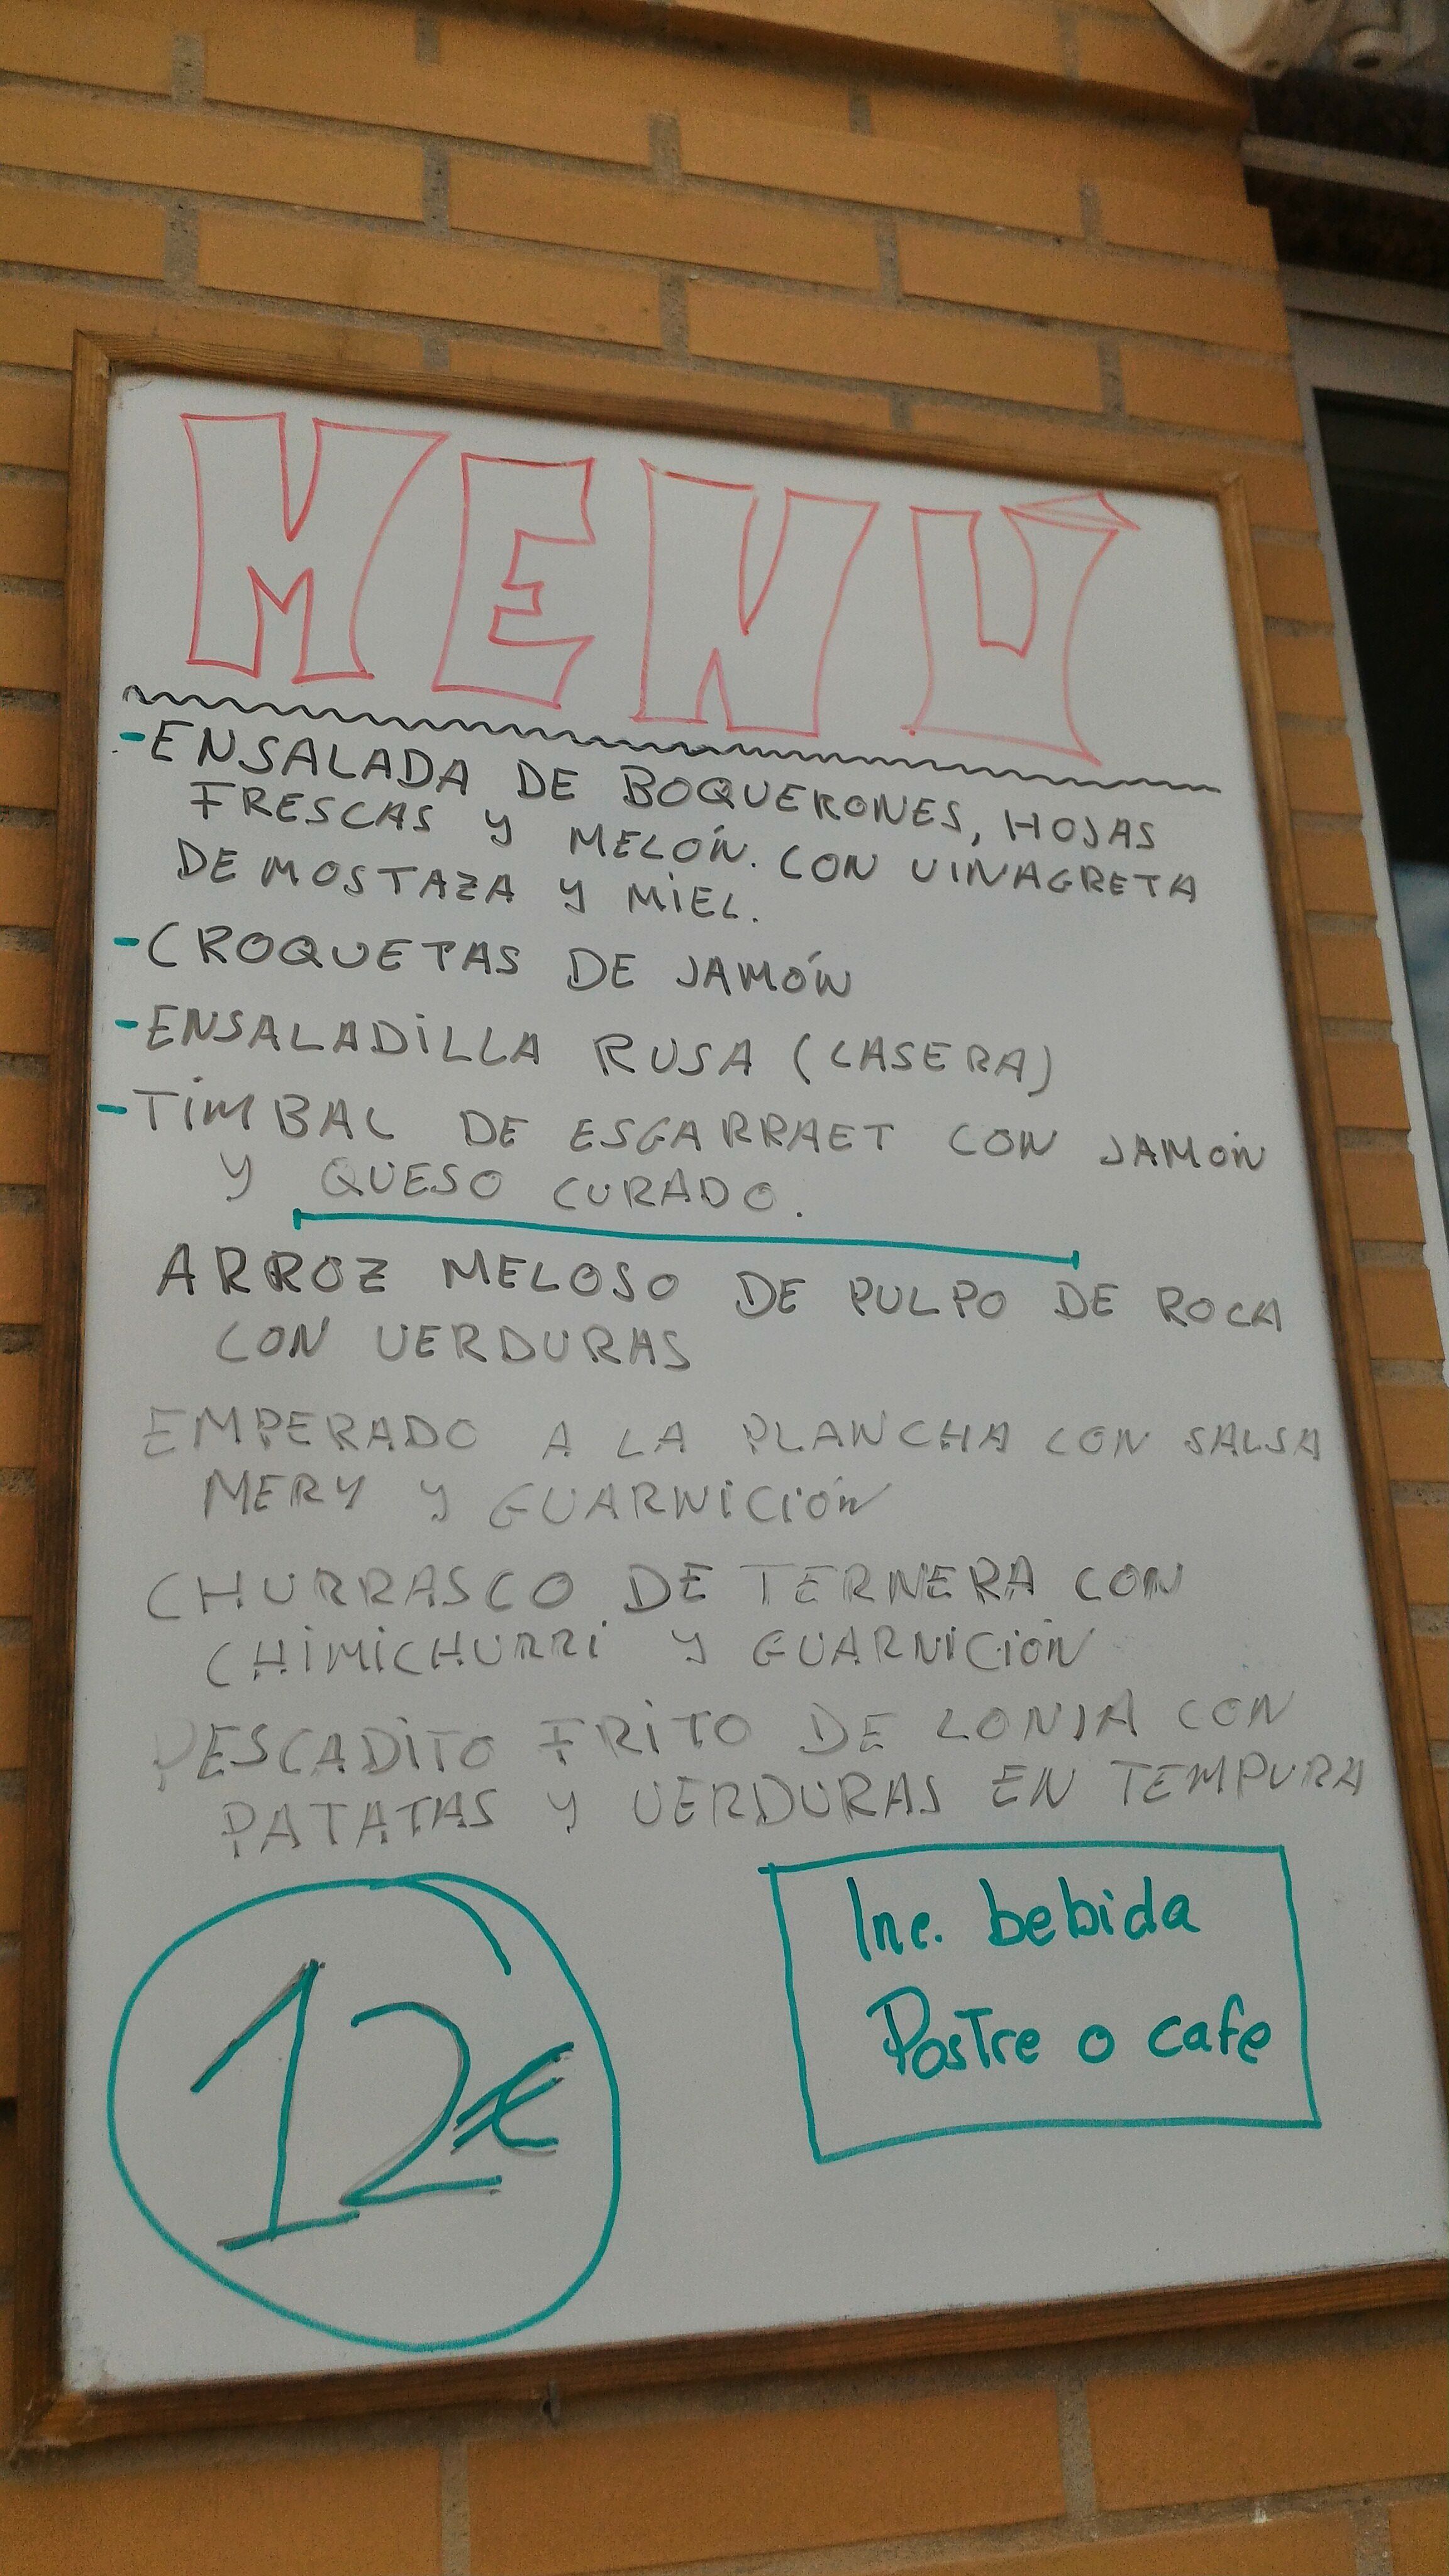 MENÚ
-ENSALADA DE BOQUERONES, HOJAS
FRESCAS Y MELÓN. CON VINAGRETA
DE MOSTAZA Y MIEL.
-CROQUETAS DE JAMÓN
-ENSALADILLA RUSA (CASERA)
-TIMBAL DE ESGARRAET CON JAMÓN
Y QUESO CURADO.
ARROZ MELOSO DE PULPO DE ROCA
CON VERDURAS
EMPERADO A LA PLANCHA CON SALSA
MERY Y GUARNICIÓN
CHURRASCO DE TERNERA CON
CHIMICHURRI Y GUARNICIÓN
PESCADITO FRITO DE LONJA CON
PATATAS Y VERDURAS EN TEMPURA
12€
Inc. bebida
Postre o cafe